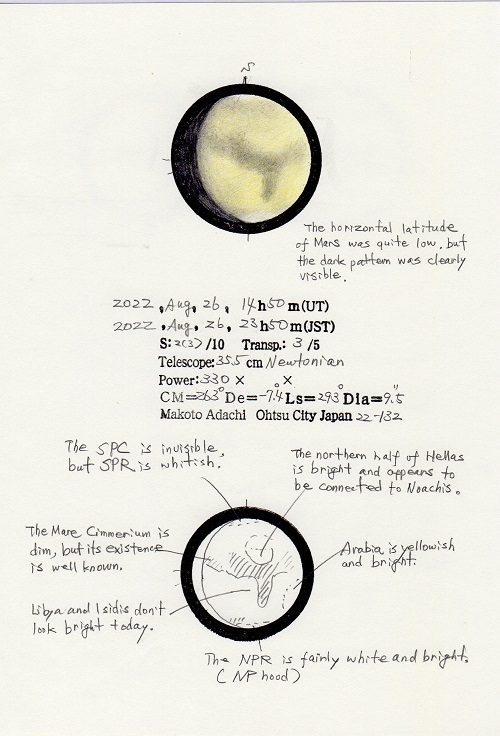 S
The horizontal latitude
of Mars was quite low, but
the dark pattern was clearly
visible.
2022, Aug, 26, 14h50m(UT)
2022, Aug, 26, 23h50m(JST)
S: 2(3)/10 Transp.: 3/5
Telescope: 355 cm Newtonian
Power: 330 × ×
CM=263° De=-7.4° Ls=293° Dia=9.5"
Makoto Adachi Ohtsu City Japan 22-132
The SPC is invisible,
but SPR is whitish.
The northern half of Hellas
is bright and appears to
be connected to Noachis.
The Mare Cimmerium is
dim, but its existence
is well known.
Arabia is yellowish
and bright.
Libya and Isidis don't
look bright today.
The NPR is fairly white and bright.
(NP hood)